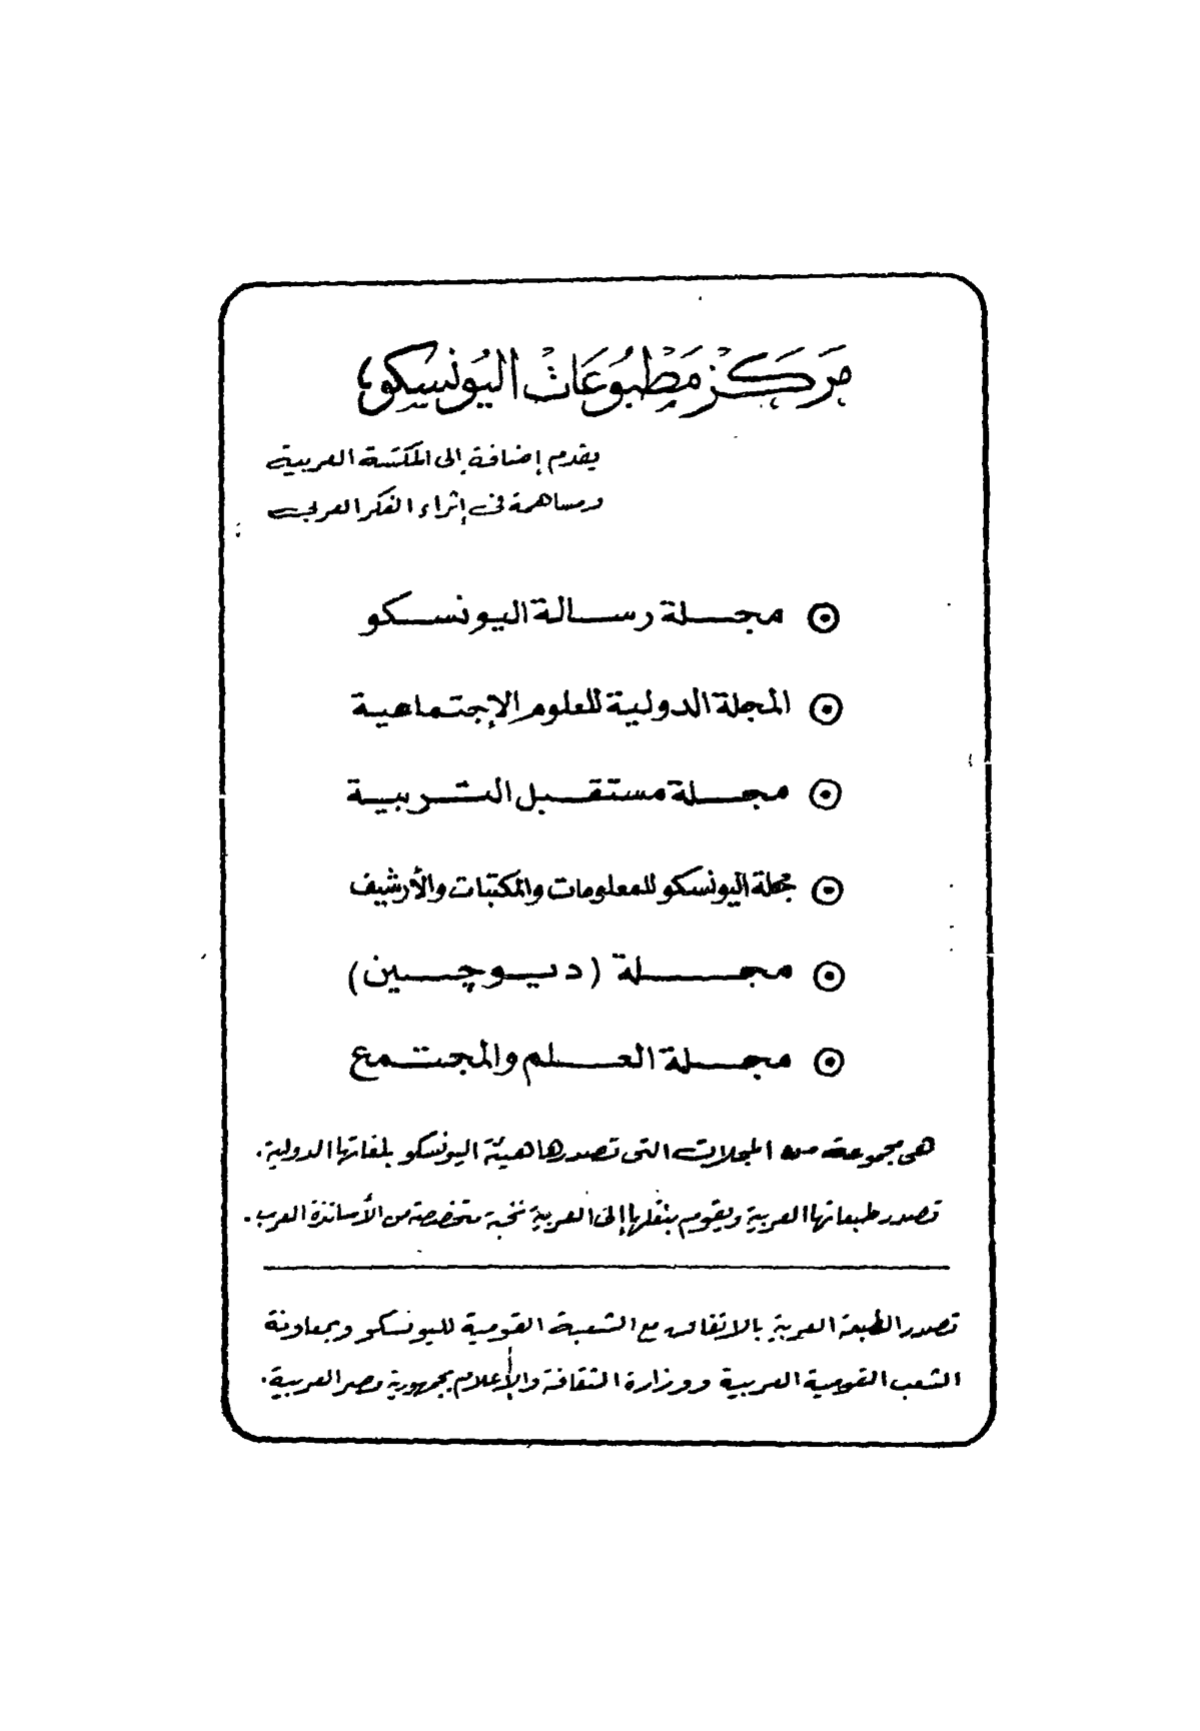 مركز مطبوعات اليونسكو
يقدم إضافة إلى المكتبة العربية
ومساهمة فى إثراء الفكر العربى
مجلة رسالة اليونسكو
المجلة الدولية للعلوم الإجتماعية
مجلة مستقبل التربية
مجلة اليونسكو للمعلومات والمكتبات والأرشيف
مجلة (ديوچين)
مجلة العلم والمجتمع
هى مجموعة من المجلات التى تصدرها هيئة اليونسكو بلغاتها الدولية.
تصدر طبعاتها العربية ويقوم بنقلها إلى العربية نخبة متخصصة من الأساتذة العرب.
تصدر الطبعة العربية بالاتفاق مع الشعبة القومية لليونسكو وبمعاونة
الشعب القومية العربية ووزارة الثقافة والإعلام بجمهورية مصر العربية.